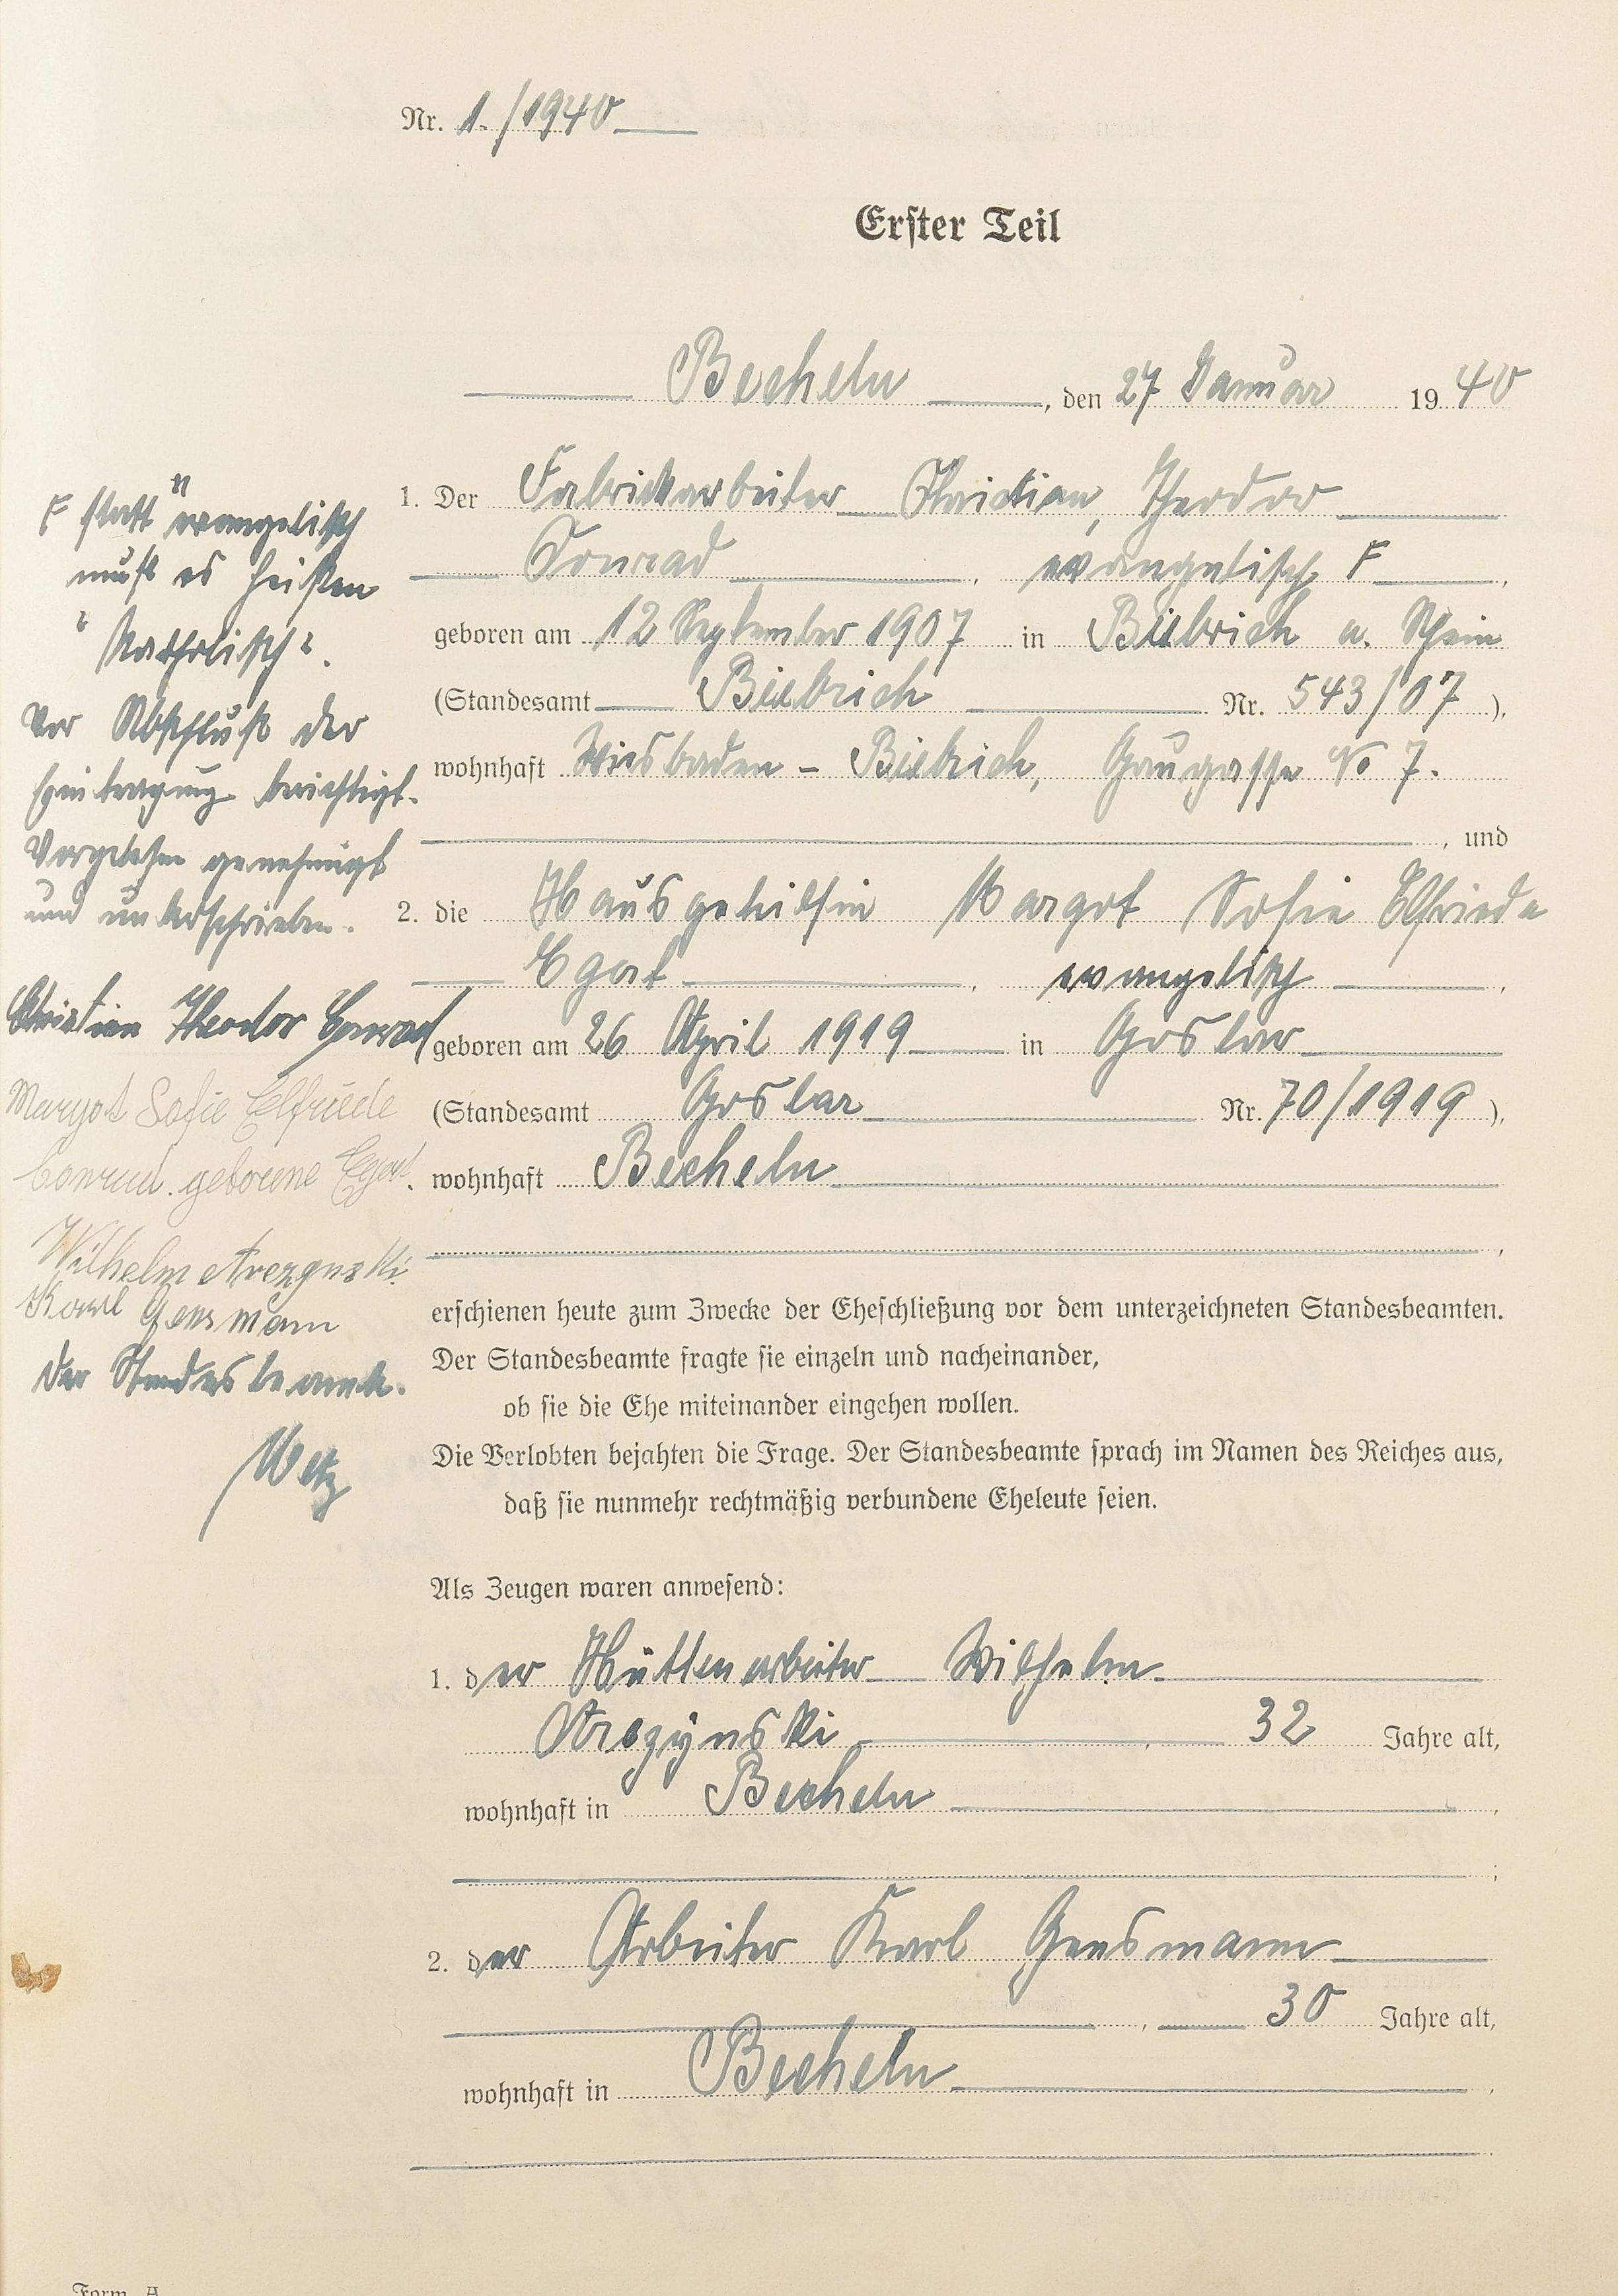 Nr. 1./1940
Erster Teil
Becheln, den 27 Januar 1940
1. Der Fabrickarbeiter Christian, Theodor
Conrad, evangelisch F,
geboren am 12 September 1907 in Biebrich a. Rhein
(Standesamt Biebrich Nr. 543/07),
wohnhaft Wiesbaden - Biebrich, Gaugasse No 7.
, und
2. die Hausgehilfin Margot Sofie Elfriede
Egert, evangelisch,
geboren am 26 April 1919 in Goslar
(Standesamt Goslar Nr. 70/1919),
wohnhaft Becheln
,
erschienen heute zum Zwecke der Eheschließung vor dem unterzeichneten Standesbeamten.
Der Standesbeamte fragte sie einzeln und nacheinander,
ob sie die Ehe miteinander eingehen wollen.
Die Verlobten bejahten die Frage. Der Standesbeamte sprach im Namen des Reiches aus,
daß sie nunmehr rechtmäßig verbundene Eheleute seien.
Als Zeugen waren anwesend:
1. der Hüttenarbeiter Wilhelm
, 32 Jahre alt,
wohnhaft in Becheln,
;
2. der Arbeiter Karl Gensmann
, 30 Jahre alt,
wohnhaft in Becheln,
.
F statt "evangelisch
muß es heißen
"Katholisch".
Vor Abschluß der
Eintragung berichtigt.
Vorgelesen genehmigt
und unterschrieben.
Christian Theodor Conrad
Margot Sofie Elfriede
Conrad. geborene Egert.
Wilhelm
Karl Gensmann
Der Standesbeamte.
Metz
Form. A